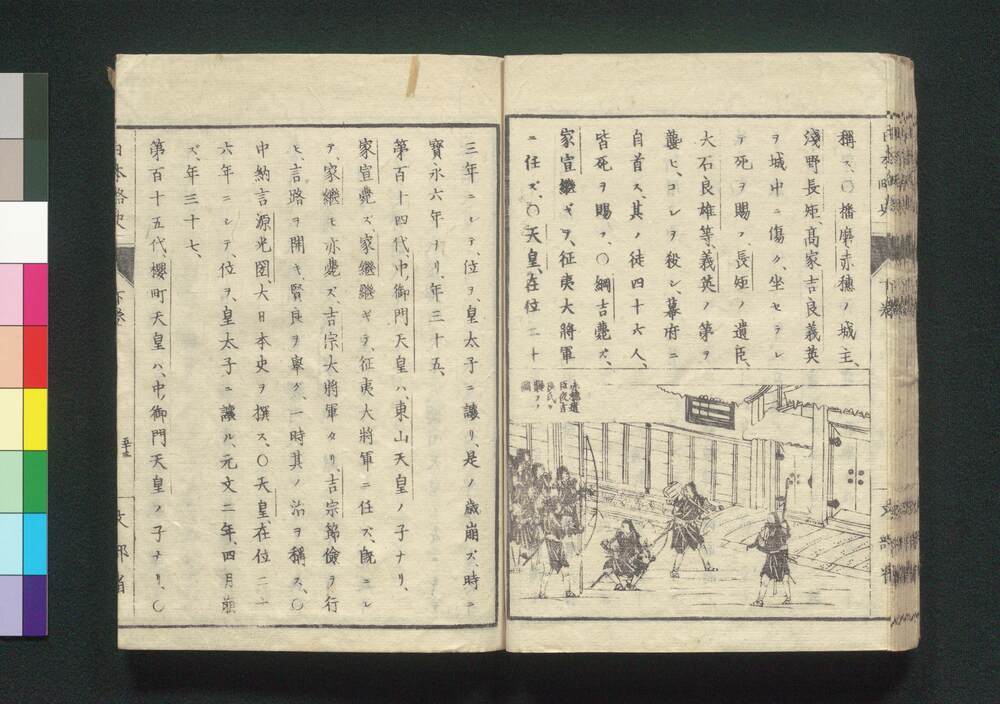 稱ス、〇播磨赤穗ノ城主、
淺野長矩、高家吉良義英
ヲ城中ニ傷ク、坐セラレ
テ死ヲ賜フ、長矩ノ遺臣、
大石良雄等、義英ノ第ヲ
襲ヒ、コレヲ殺シ、幕府ニ
自首ス、其ノ徒四十六人、
皆死ヲ賜フ、〇綱吉薨ズ、
家宣繼ギテ、征夷大將軍
ニ任ズ、〇天皇、在位二十
赤穗遺
臣夜吉
良氏ヲ
三年ニシテ、位ヲ、皇太子ニ讓リ、是ノ歲崩ズ、時ニ
寶永六年ナリ、年三十五、
第百十四代、中御門天皇ハ、東山天皇ノ子ナリ、
家宣薨ズ、家繼繼ギテ、征夷大將軍ニ任ズ、既ニシ
テ、家繼モ亦薨ズ、吉宗大將軍タリ、吉宗節儉ヲ行
ヒ、言路ヲ開キ、賢良ヲ擧グ、一時其ノ治ヲ稱ス、〇
中納言源光圀、大日本史ヲ撰ス、〇天皇、在位二十
六年ニシテ、位ヲ、皇太子ニ讓ル、元文二年、四月崩
ズ、年三十七、
第百十五代、櫻町天皇ハ、中御門天皇ノ子ナリ、〇
日本略史 下卷
五十三 文部省